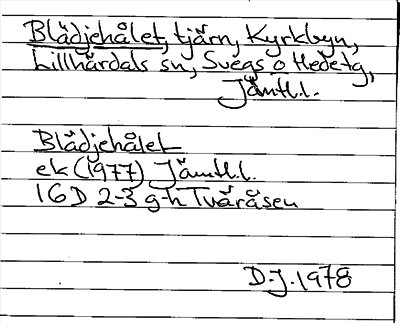 Blädjehålet, tjärn, Kyrkbyn,
Lillhärdals sn, Svegs o Hedetg,
Jämtl.l.
Blädjehålet
ek (1977) Jämtl.l.
16D 2-3 g-h Tvåråsen
D.J. 1978